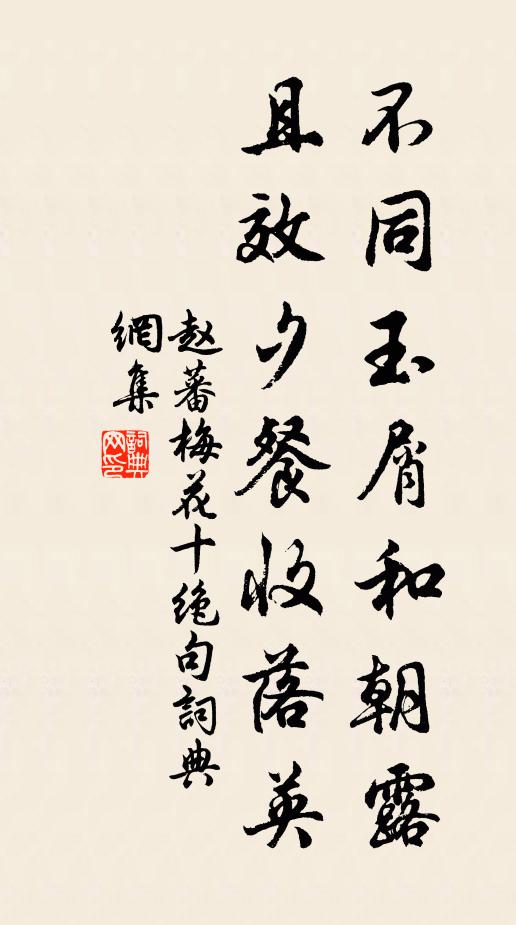 不同玉屑和朝露
且效夕餐收落英
赵蕃梅花十绝句詞典
網集
詞典
网印